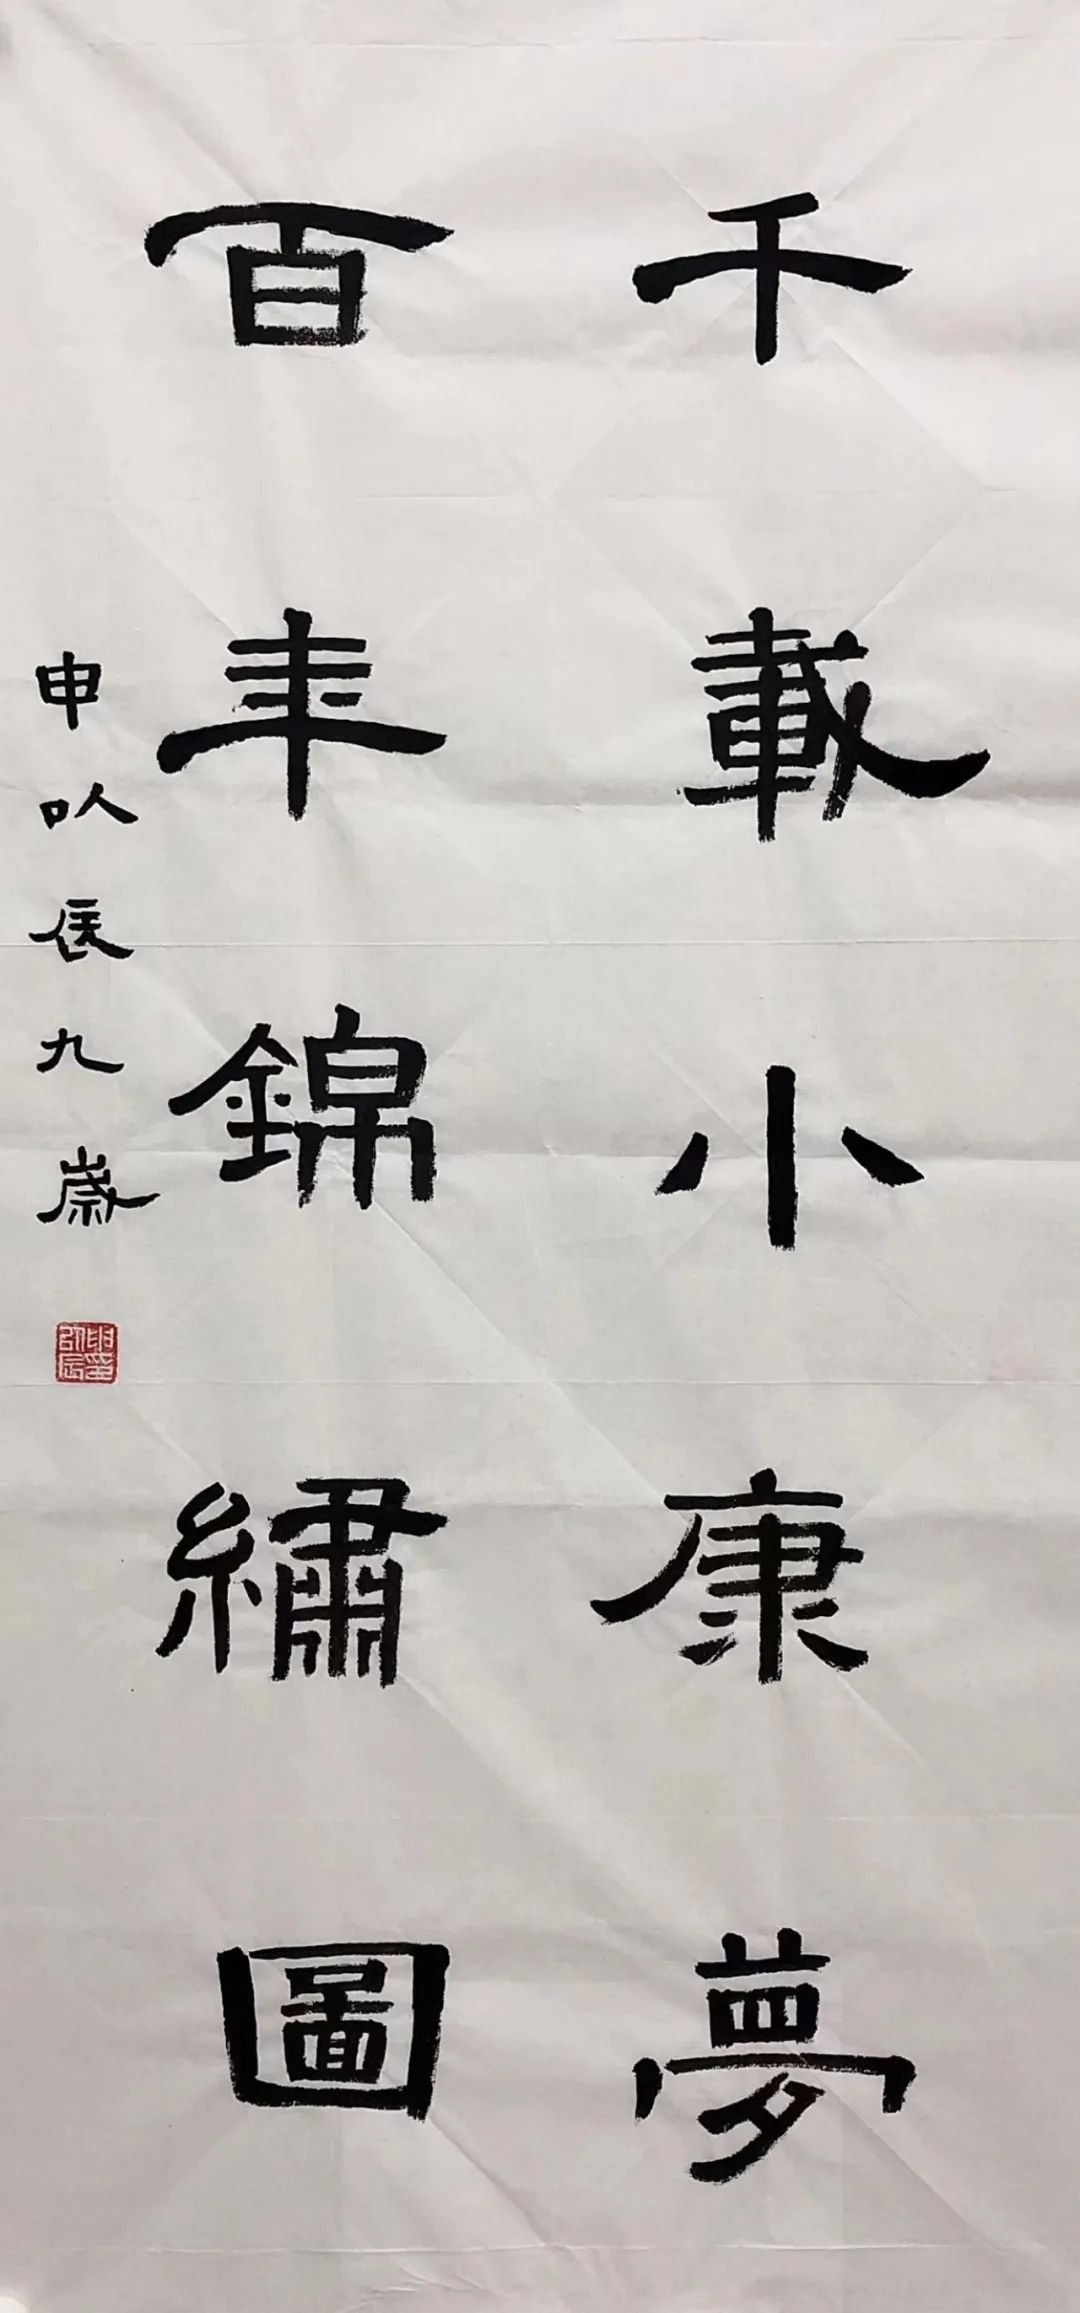 千載小康夢
百年錦繡圖
申以辰九歲